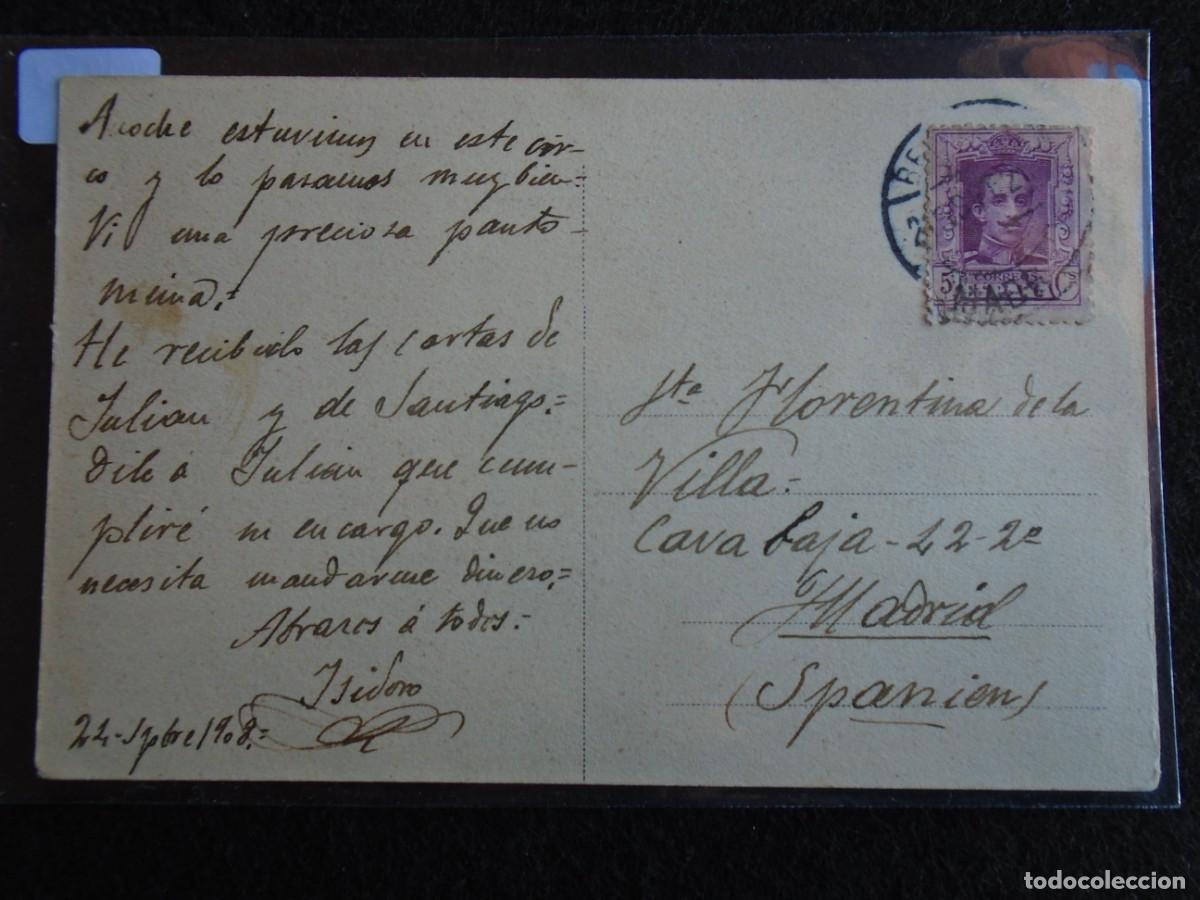 Anoche estuvimos en este cir-
co y lo pasamos muy bien.-
Vi una preciosa panto-
mima.=
He recibido las cartas de
Julian y de Santiago.=
Dile á Julian que cum-
pliré su encargo. Que no
necesita mandarme dinero.=
Abrazos á todos.-
Isidoro
22-Sptbre/908.=
Sta Florentina de la
Villa-
Cava baja-22-2º
Madrid
(Spanien)
CORREOS
todocoleccion